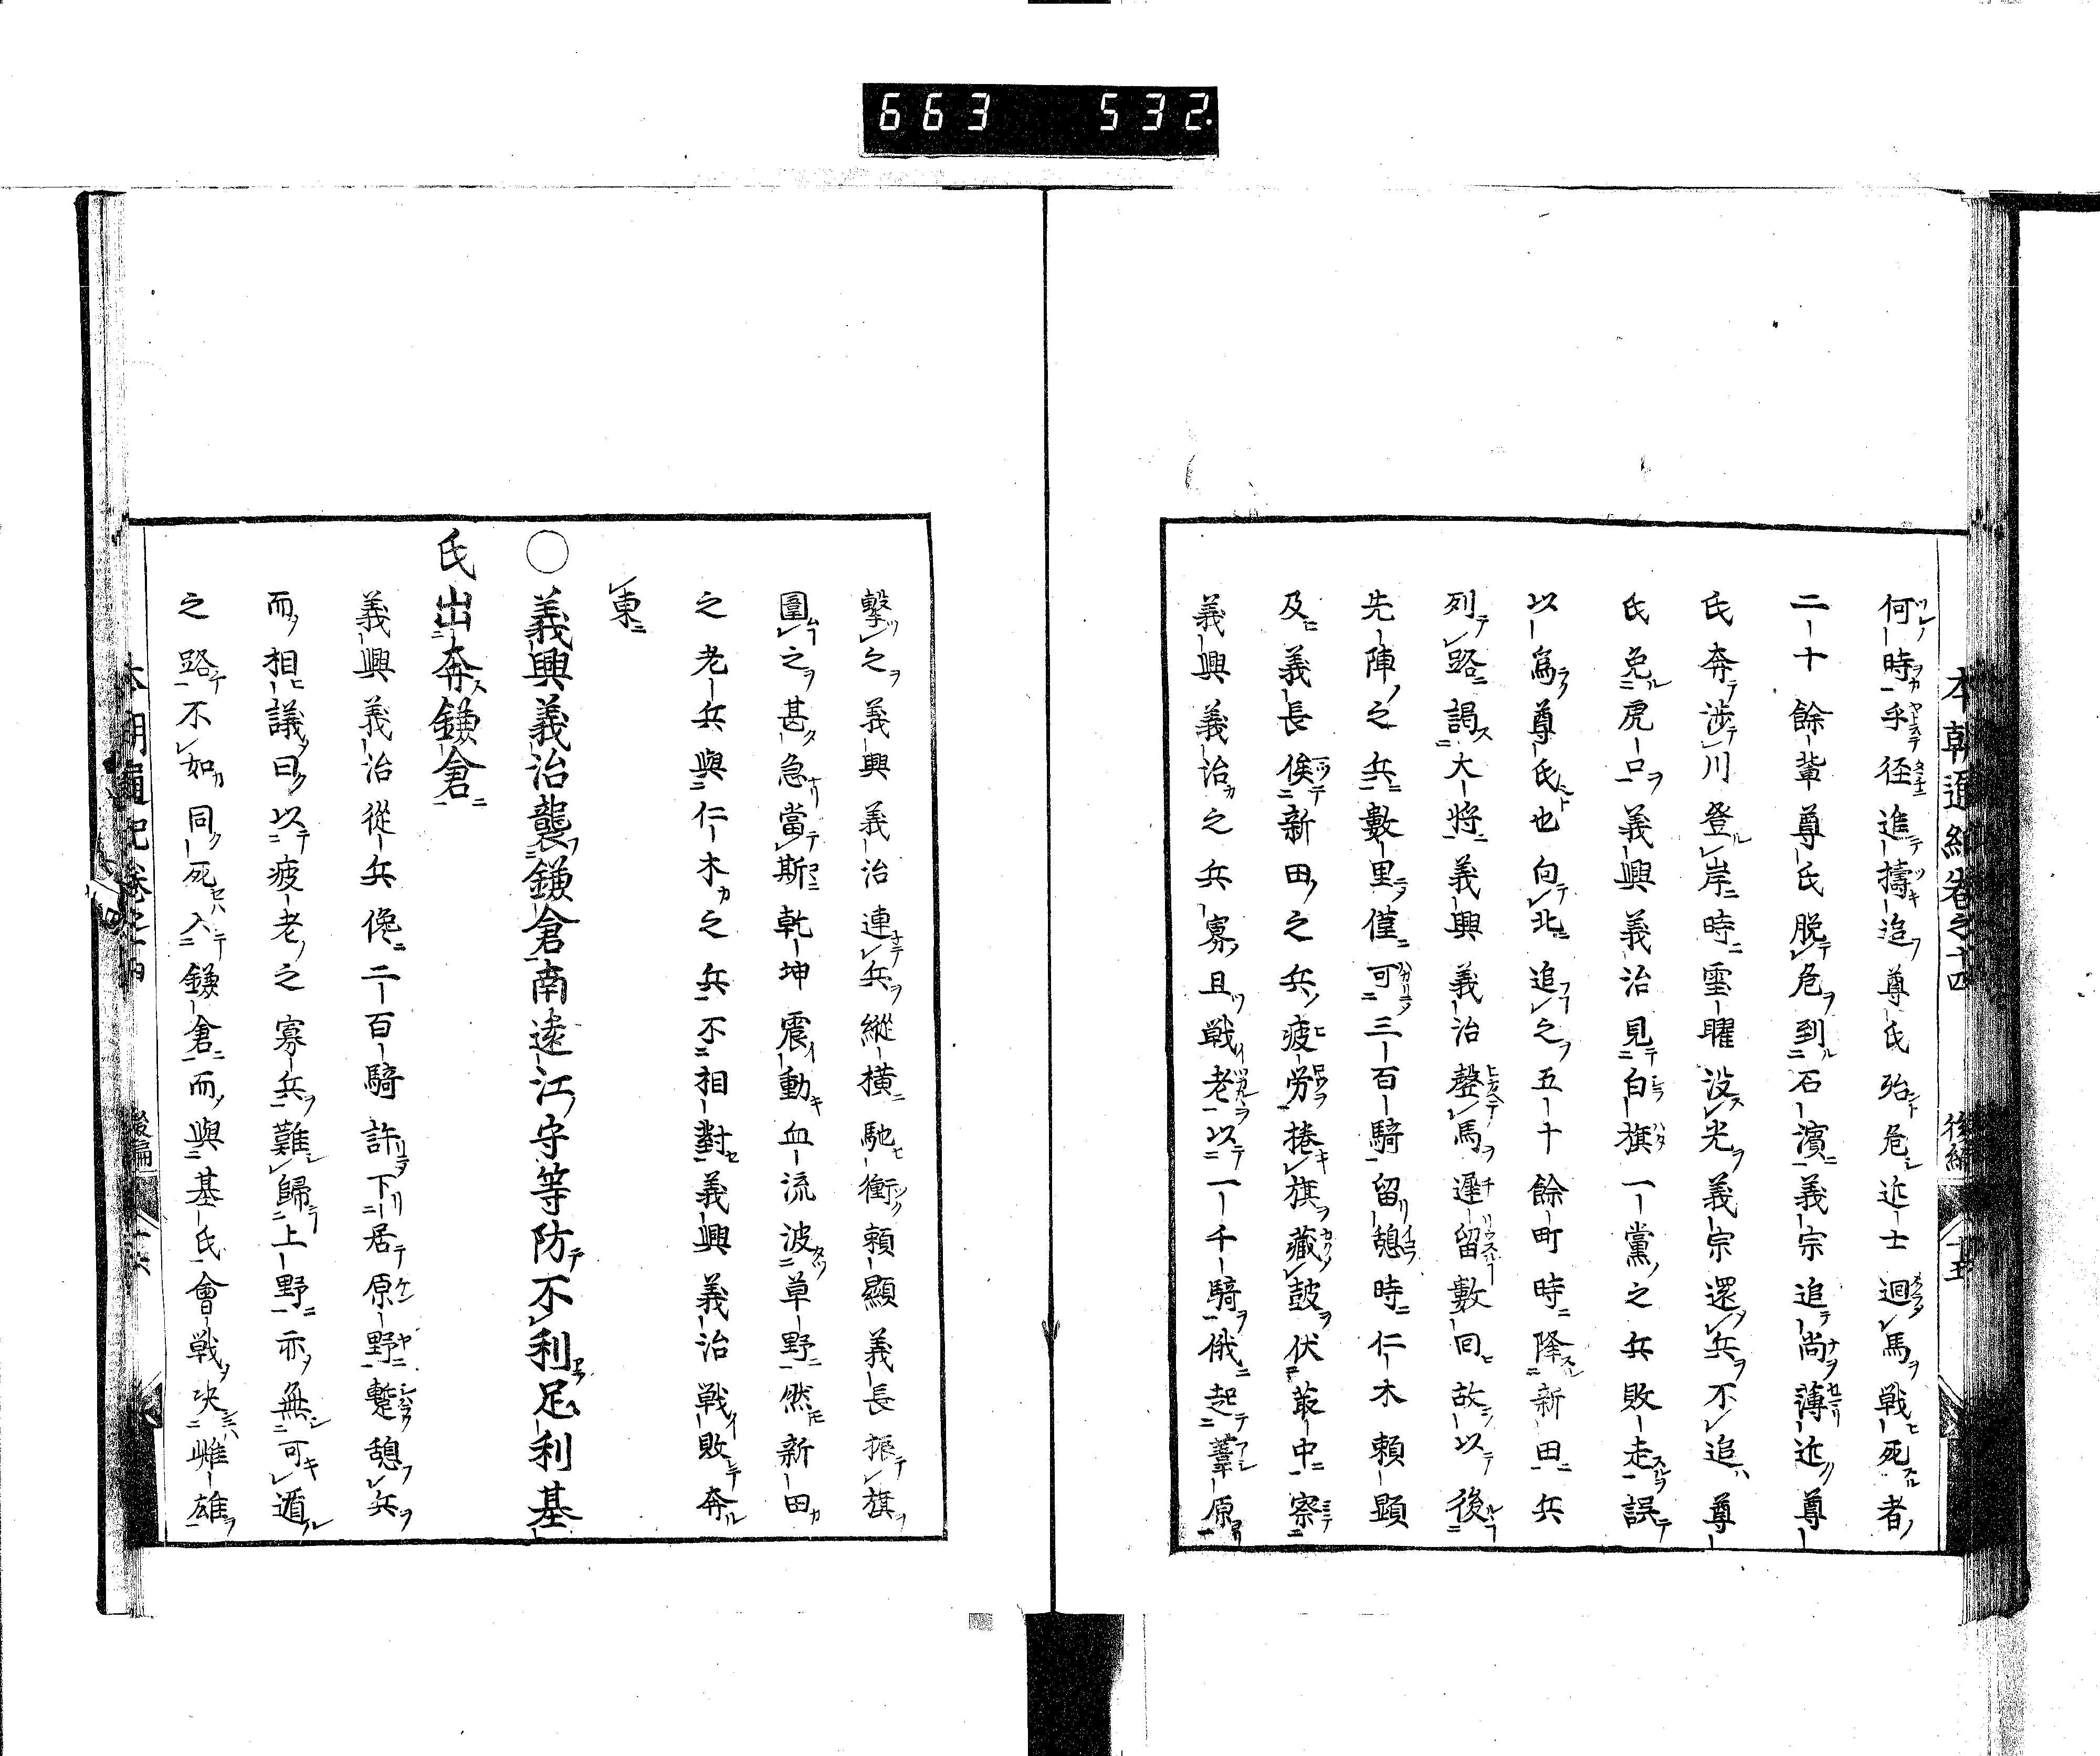 663 532.
本朝通紀卷之十四 後編 十五
何時乎径進擣追尊氏殆危近士迴馬戦死者
二十餘輩尊氏脱危到石濵義宗追尚薄近尊
氏奔涉川登岸時霊曜没光義宗還兵不追尊
氏免虎口義興義治見白旗一黨之兵敗走誤
以爲尊氏也向北追之五十餘町時降新田兵
列路謁大将義興義治整馬遲留數回故以後
先陣之兵數里僅可三百騎留憩時仁木頼顕
及義長俟新田之兵疲労捲旗藏鼓伏叢中察
義興義治之兵寡且戦老以一千騎俄起葦原
擊之義興義治連兵縦横馳衝頼顯義長振旗
圍之甚急當斯乾坤震動血流波草野然新田
之老兵與仁木之兵不相對義興義治戦敗奔
東
○義興義治襲鎌倉南遠江守等防不利足利基
氏出奔鎌倉
義興義治從兵儳二百騎許下居原野蹔憩兵
而相議曰以疲老之寡兵難歸上野亦無可遁
之路不如同死入鎌倉而與基氏會戦决雌雄